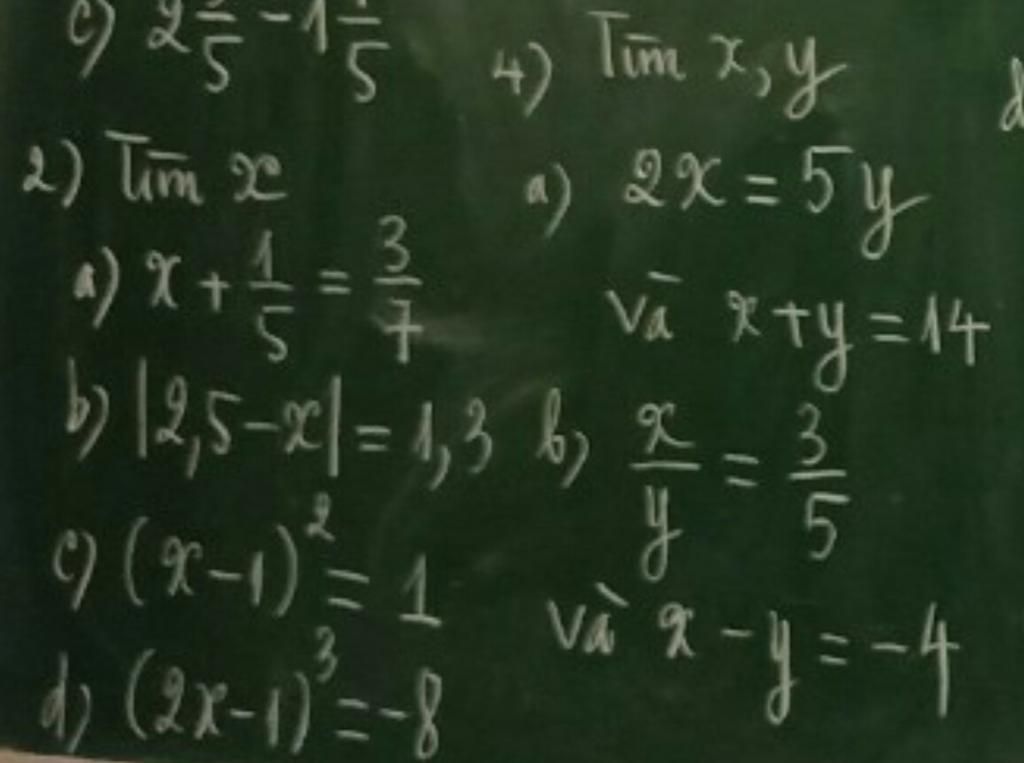 c) 2 /5 - 1 /5
2) Tìm x
a) x + 1/5 = 3/7
b) |2,5-x| = 1,3
c) (x-1)² = 1
d) (2x-1)³ = -8
4) Tìm x, y
a) 2x = 5y
và x+y = 14
b) x/y = 3/5
và x - y = -4